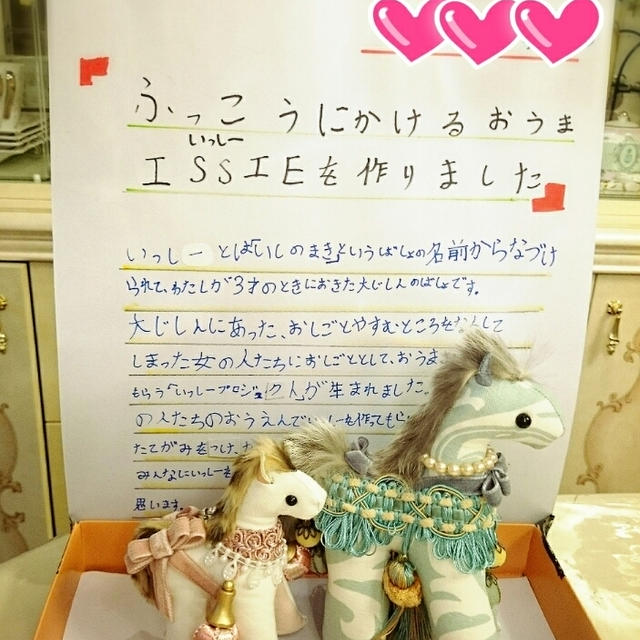 ふっこうにかけるおうま
いっしー
ISSIEを作りました
いっしーとは「いしのまき」というばしょの名前からなづけ
られて、わたしが3才のときにおきた大じしんのばしょです。
大じしんにあった、おしごとやすむところをなくして
しまった女の人たちにおしごととして、おうま
もらう「いっしープロジェクト」が生まれました。
の人たちのおうえんで
たてがみをつけ、
みんなにいっしーを
思います。